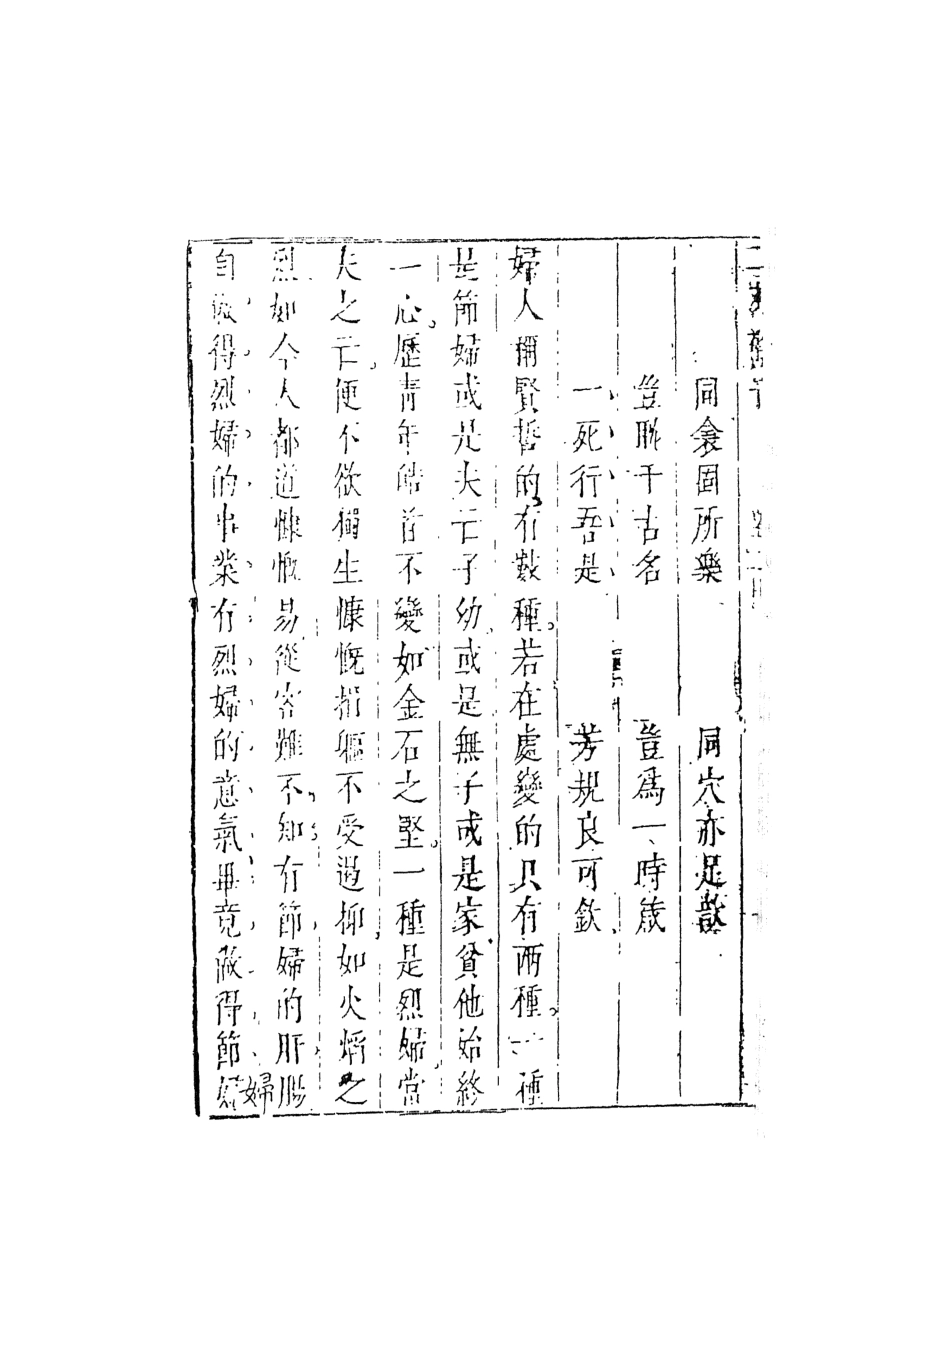 同衾固所樂　同穴亦足歆
豈聆千古名　豈爲一時箴
一死行吾是　芳規良可欽
婦人稱賢哲的有數種若在處變的只有兩種一種
是節婦或是夫亡子幼或是無子或是家貧他始終
一心歷青年皓首不變如金石之堅一種是烈婦當
夫之亡便不欲獨生慷慨捐軀不受遏抑如火焰之
烈如今人都道慷慨易從容難不知有節婦的肝腸
自做得烈婦的事業有烈婦的意氣毕竟做得節婦
婦